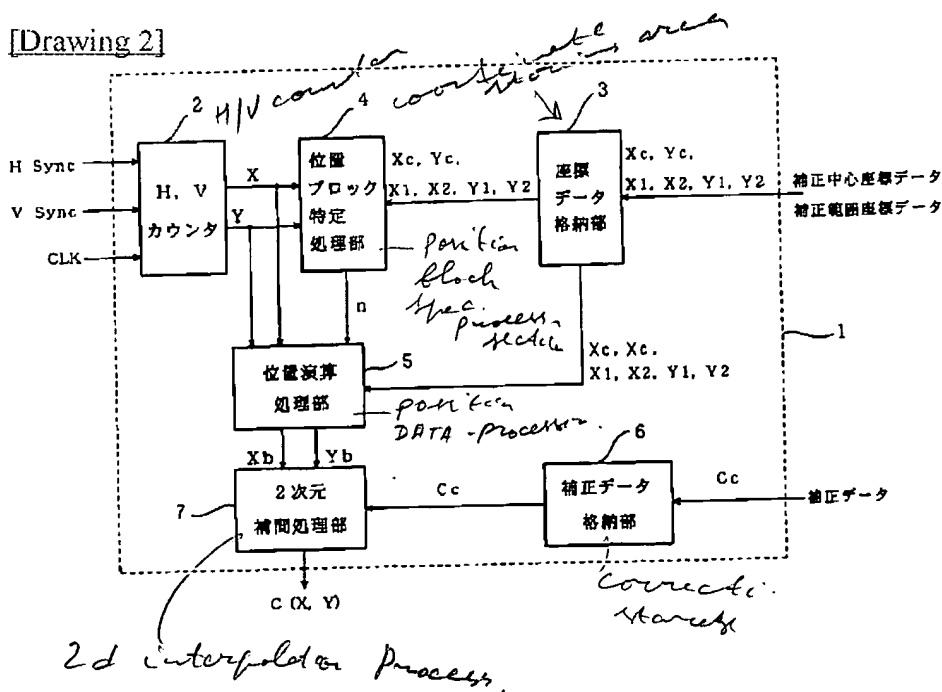 [Drawing 2]
2
H/V counter
4
coordinate
storing area
3
H Sync
V Sync
CLK
H, V
カウンタ
X
Y
位置
ブロック
特定
処理部
Xc, Yc,
X1, X2, Y1, Y2
座標
データ
格納部
Xc, Yc,
X1, X2, Y1, Y2
補正中心座標データ
補正範囲座標データ
position
block
spec.
process
section
n
1
位置演算
処理部
5
Xc, Xc,
X1, X2, Y1, Y2
position
DATA-processin.
Xb
Yb
6
7
2次元
補間処理部
Cc
補正データ
格納部
Cc
補正データ
C (X, Y)
correcti.
storage
2d interpolation Process.